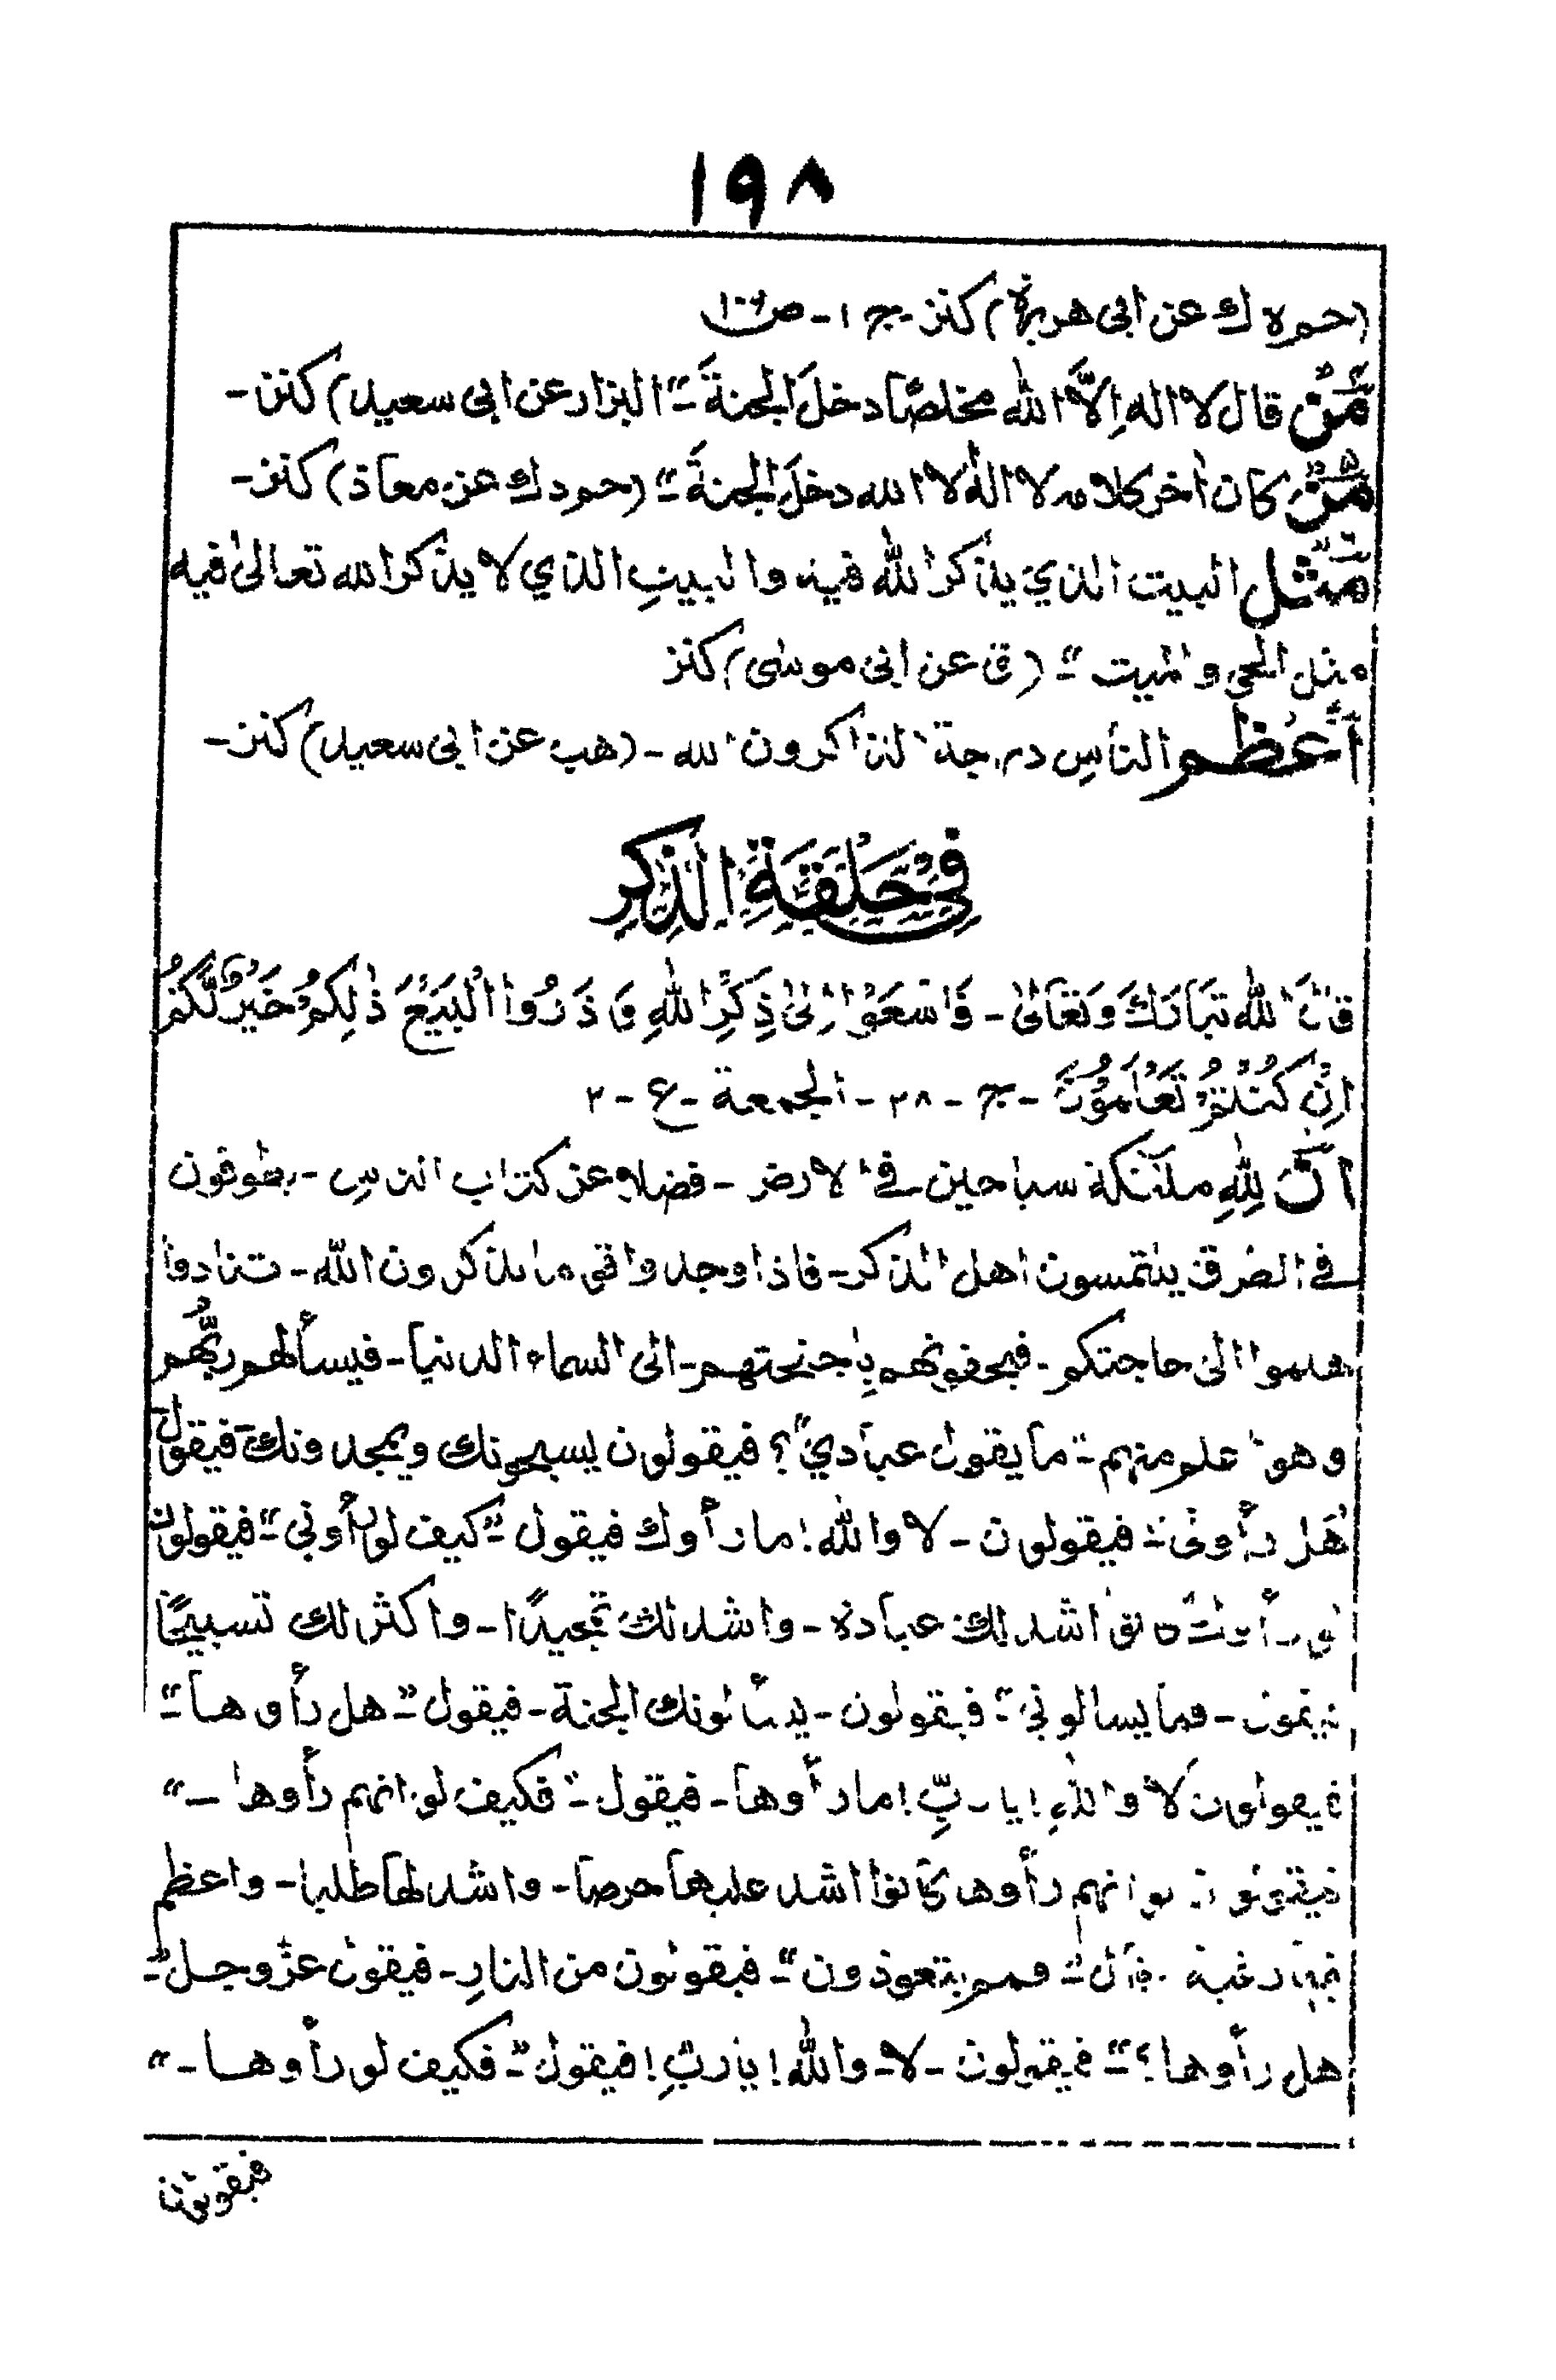 ١٩٨
(حم ه ك عن ابی هریرۃ) كنز - ج ١ - ص
مَنْ قال لا اله اِلَّا الله مخلصًا دخلَ الجنةَ ـ" البزار عن ابی سعيد) كنز -
مَنْ كان اٰخر كلامه لا الٰه لا الله دخلَ الجنةَ ـ" (حم د ك عن معاذ) كنز -
مَثل البيت الذي يذكر الله فيه والبيتِ الذي لا يذكر الله تعالىٰ فيه
مثل الحي والميت ـ" (ق عن ابی موسٰی) كنز
اَعْظم الناسِ درجة الذاكرون الله - (هب عن ابی سعيد) كنز -
فِيْ حَلْقَةِ الذِّكرِ
قالَ اللهُ تَبَارَكَ وَتَعَالىٰ - فَاسْعَوْا اِلىٰ ذِكْرِ اللهِ وَذَرُوا الْبَيْعَ ذٰلِكُمْ خَيْرٌ لَّكُمْ
اِنْ كُنْتُمْ تَعْلَمُوْنَ - ج - ٢٨ - الجمعة - ع - ٢
انَّ لِلّٰهِ ملٰئكة سياحين فی الارض - فضلا عن كتاب الناسِ - يطوفون
فی الطرق يلتمسون اهل الذكر - فاذا وجدوا قوما يذكرون الله - تنادوا
هلموا الى حاجتكم - فيحفونهم بِاجنحتهم - الى السماء الدنيا - فيسألهم ربُّهم
وهو اعلم منهم ـ" ما يقول عبادي"؟ فيقولون يسبحونك ويمجدونك فيقول
هَل رأونی ـ" فيقولون - لا والله! ما رأوك فيقول ـ" كيف لو رأوني ـ" فيقولون
لو رأوك كانوا اشد لك عبادة - واشد لك تمجيدًا - واكثر لك تسبيحًا
فيقول - فما يسالوني ـ" فيقولون - يسألونك الجنة - فيقول ـ" هل رأوها ـ"
فيقولون لا والله! يا ربِّ! ما رأوها - فيقول ـ" فكيف لو انهم رأوها ـ"
فيقولون لو انهم رأوها كانوا اشد عليها حرصا - واشد لها طلبا - واعظم
فيها رغبة . قال ـ" فمم يتعوذون ـ" فيقولون من النارِ - فيقول عزّوجل ـ"
هل رأوها؟ ـ" فيقولون - لا - والله! يا ربِ! فيقول ـ" فكيف لو رأوها - "
فيقولون